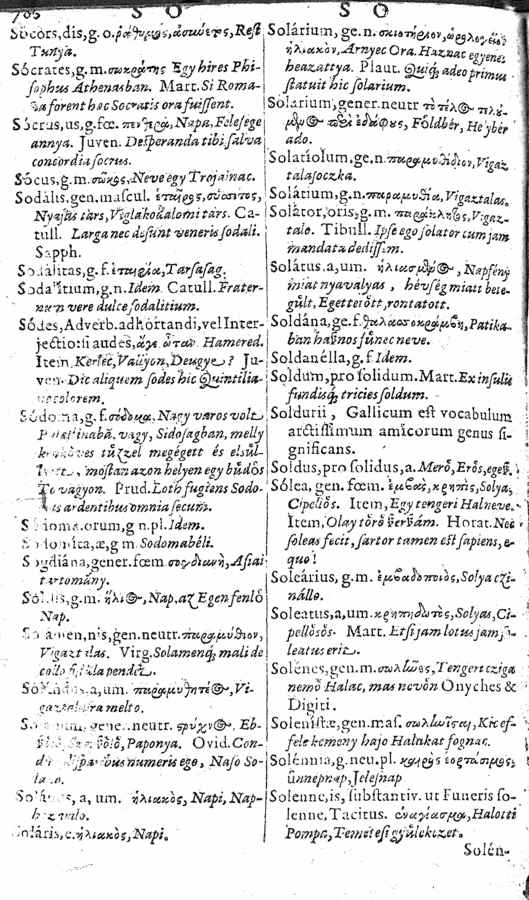 S O S O
Socors, dis, g. o. ῥάθυμος, ἀσώετος, Rest
Tunya.
Sócrates, g. m. σωκράτης Egy hires Phi-
sophus Athenasban. Mart. Si Roma-
forent hæc Socratis ora fuissent.
Sócrus, us, g. fœ. πενθερὰ, Napa, Felesege
annya. Juven. Desperanda tibi salva
concordia socru.
Sócus, g. m. σῶκος, Neve egy Trojainac.
Sodális, gen. mascul. ἑταῖρος, σύσσιτος,
Nyajas tars, Viglakozalomi társ. Ca-
tull. Larga nec desunt veneris sodali.
Sapph.
Sodálitas, g. f. ἑταιρία, Tarsasag.
Sodalitium, g. n. Idem. Catull. Frater-
num vere dulce sodalitium.
Sódes, Adverb. adhortandi, vel Inter-
jectio: si audes, Hamered.
Item, Kerlec, Vallyon, Deugye? Ju-
ven. Dic aliquem sodes hic Quintilia-
ne colorem.
Sódoma, g. f. σόδομα, Nagy varos volt
Palæstinabā, vagy, Sidosagban, melly
kenköves tüzzel megégett és elsül-
mostan azon helyen egy büdös
To vagyon. Prud. Loth fugiens Sodo-
ardentibus omnia secum.
Sodoma, orum, g. n. pl. Idem.
Sodomita, æ, g. m. Sodomabéli.
Sogdiána, gener. fœm. σογδιανὴ, Asiai
tartomány.
Sol, lis, g. m. ἥλιος, Nap, az Egen fenlö
Nap.
Solamen, nis, gen. neutr. παραμύθιον,
Vigaztalas. Virg. Solamenq; mali de
collo fistula pendet.
Solandus, a, um. παραμυθητέος, Vi-
gaztalásra melto.
gener. neutr. Eb-
Paponya. Ovid. Con-
numeris ego, Naso So-
lano.
Solánus, a, um. ἡλιακὸς, Napi, Nap-
hoz valo.
Soláris, e. ἡλιακὸς, Napi.
Solárium, ge. n. σκιοτήριον, ὡρολογεῖον
ἡλιακὸν, Arnyec Ora. Haznac egyenes
heazattya. Plaut. Quiq; adeo primus
statuit hic solarium.
Solarium, gener. neutr. Földbér, Helybér
ado.
Solatiolum, ge. n. παραμυθίδιον, Vigaz
talasoczka.
Solátium, g. n. παραμυθία, Vigaztalas.
Solátor, oris, g. m. παράκλητος, Vigaz-
talo. Tibull. Ipse ego solator cum jam
mandata dedissem.
Solátus, a, um. Napfény
miat nyavalyas, hévség miatt bete-
gült, Egettetött, rontatott.
Soldána, ge. f. Patika-
ban hasnos fünec neve.
Soldanélla, g. f. Idem.
Soldum, pro solidum. Mart. Ex insulis
fundisq; tricies soldum.
Soldurii, Gallicum est vocabulum
arctissimum amicorum genus si-
gnificans.
Soldus, pro solidus, a. Merö, Erös, egesz.
Sólea, gen. fœm. ἐμβὰς, κρηπὶς, Solya,
Cipellös. Item, Egy tengeri Halneve.
Item, Olay törö Servám. Horat. Nec
soleas fecit, sartor tamen est sapiens, e-
quo!
Soleárius, g. m. ἐμβαδοποιὸς, Solya czi-
nállo.
Soleatus, a, um. κρηπιδωτὸς, Solyas, Ci-
pellösös. Mart. Etsi jam lotus jam so-
leatus erit.
Solénes, gen. m. σωλῆνες, Tengeri cziga
nemö Halac, mas nevön Onyches &
Digiti.
Solenistæ, gen. mas. σωληνισταὶ, Kic ef-
fele kemony hajo Halakat fognac.
Solénnia, g. neu. pl. ἑορτάσιμος,
ünnepnap, Jelesnap
Solenne, is, substantiv. ut Funeris so-
lenne, Tacitus. ἐναγίασμα, Halotti
Pompa, Temetesi gyülekezet.
Solén-